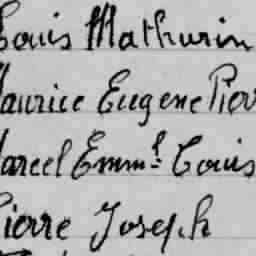 Louis Mathurin
Maurice Eugene Pierr
Marcel Emm.l Louis
Pierre Joseph